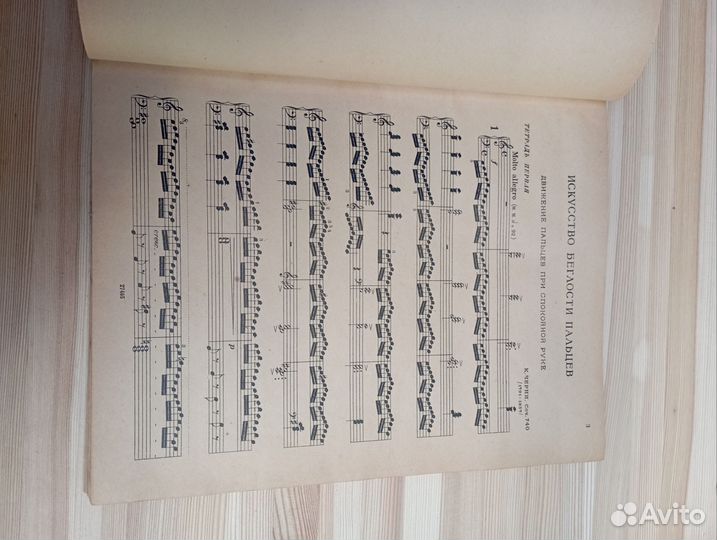 3
ИСКУССТВО БЕГЛОСТИ ПАЛЬЦЕВ
ДВИЖЕНИЕ ПАЛЬЦЕВ ПРИ СПОКОЙНОЙ РУКЕ
ТЕТРАДЬ ПЕРВАЯ
К. ЧЕРНИ, Соч. 740
(1791-1857)
1
Molto allegro (M. M. = 92)
f
p
cresc.
8
27465
Avito